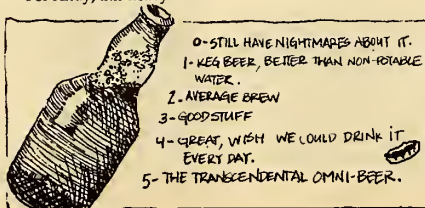 0-STILL HAVE NIGHTMARES ABOUT IT.
1-KEG BEER, BETTER THAN NON-POTABLE
WATER.
2-AVERAGE BREW
3-GOOD STUFF
4-GREAT, WISH WE COULD DRINK IT
EVERY DAY.
5-THE TRANSCENDENTAL OMNI-BEER.